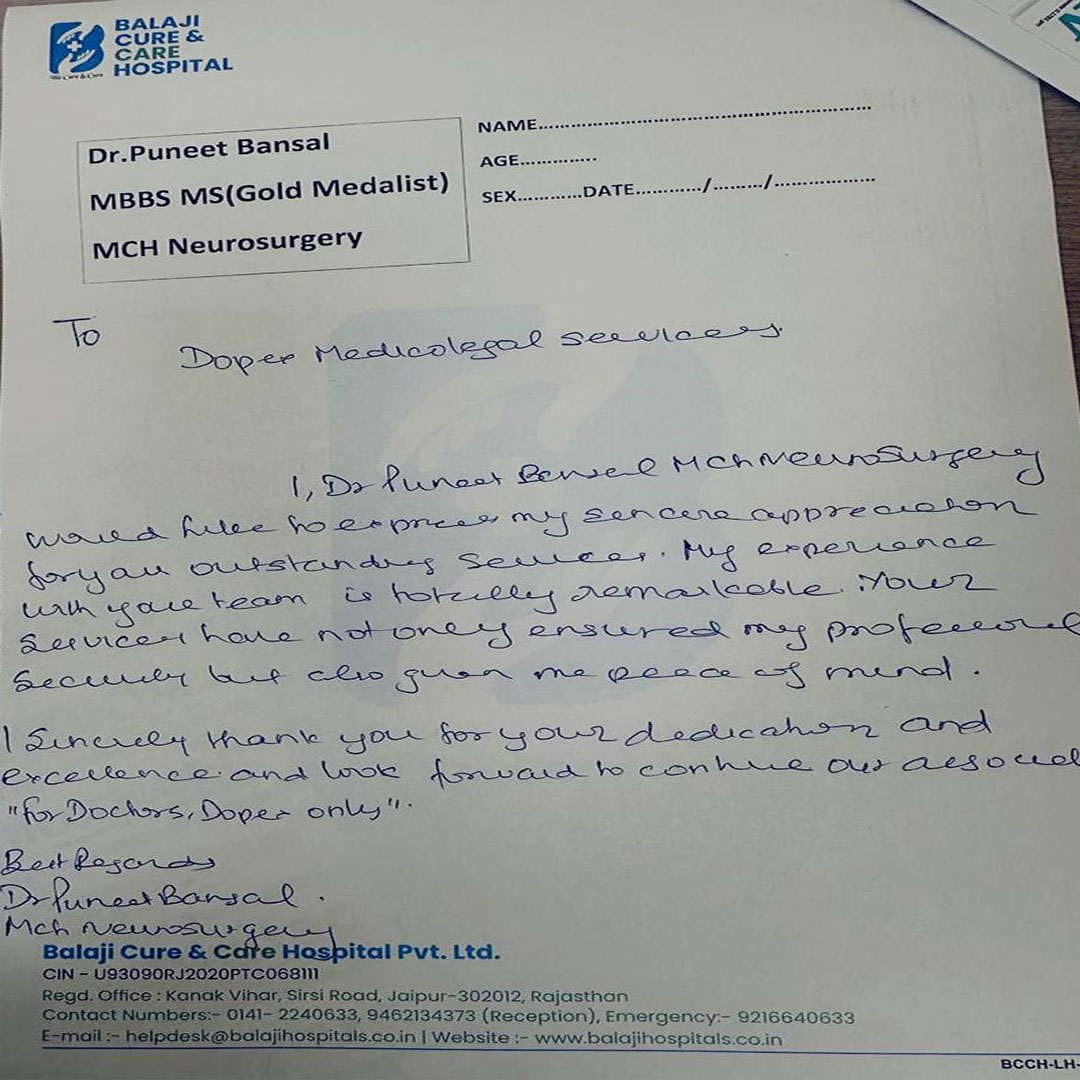 BALAJI
CURE &
CARE
HOSPITAL
We Cure & Care
Dr.Puneet Bansal
MBBS MS(Gold Medalist)
MCH Neurosurgery
NAME...............................................................
AGE..............
SEX............DATE............/........./..................
To
Dopex Medicolegal services.
I, Dr Puneet Bansal MCh Neurosurgery
would like to express my sencere appreciation
for your outstanding services. My experience
with your team is totally remarkable. Your
services have not only ensured my professional
security but also given me peace of mind.
I sincerely thank you for your dedication and
excellence and look forward to continue our
"for Doctors, Dopex only".
Best Regards
Dr Puneet Bansal.
Mch Neurosurgery
Balaji Cure & Care Hospital Pvt. Ltd.
CIN - U93090RJ2020PTC068111
Regd. Office : Kanak Vihar, Sirsi Road, Jaipur-302012, Rajasthan
Contact Numbers:- 0141- 2240633, 9462134373 (Reception), Emergency:- 9216640633
E-mail :- helpdesk@balajihospitals.co.in | Website :- www.balajihospitals.co.in
BCCH-LH-